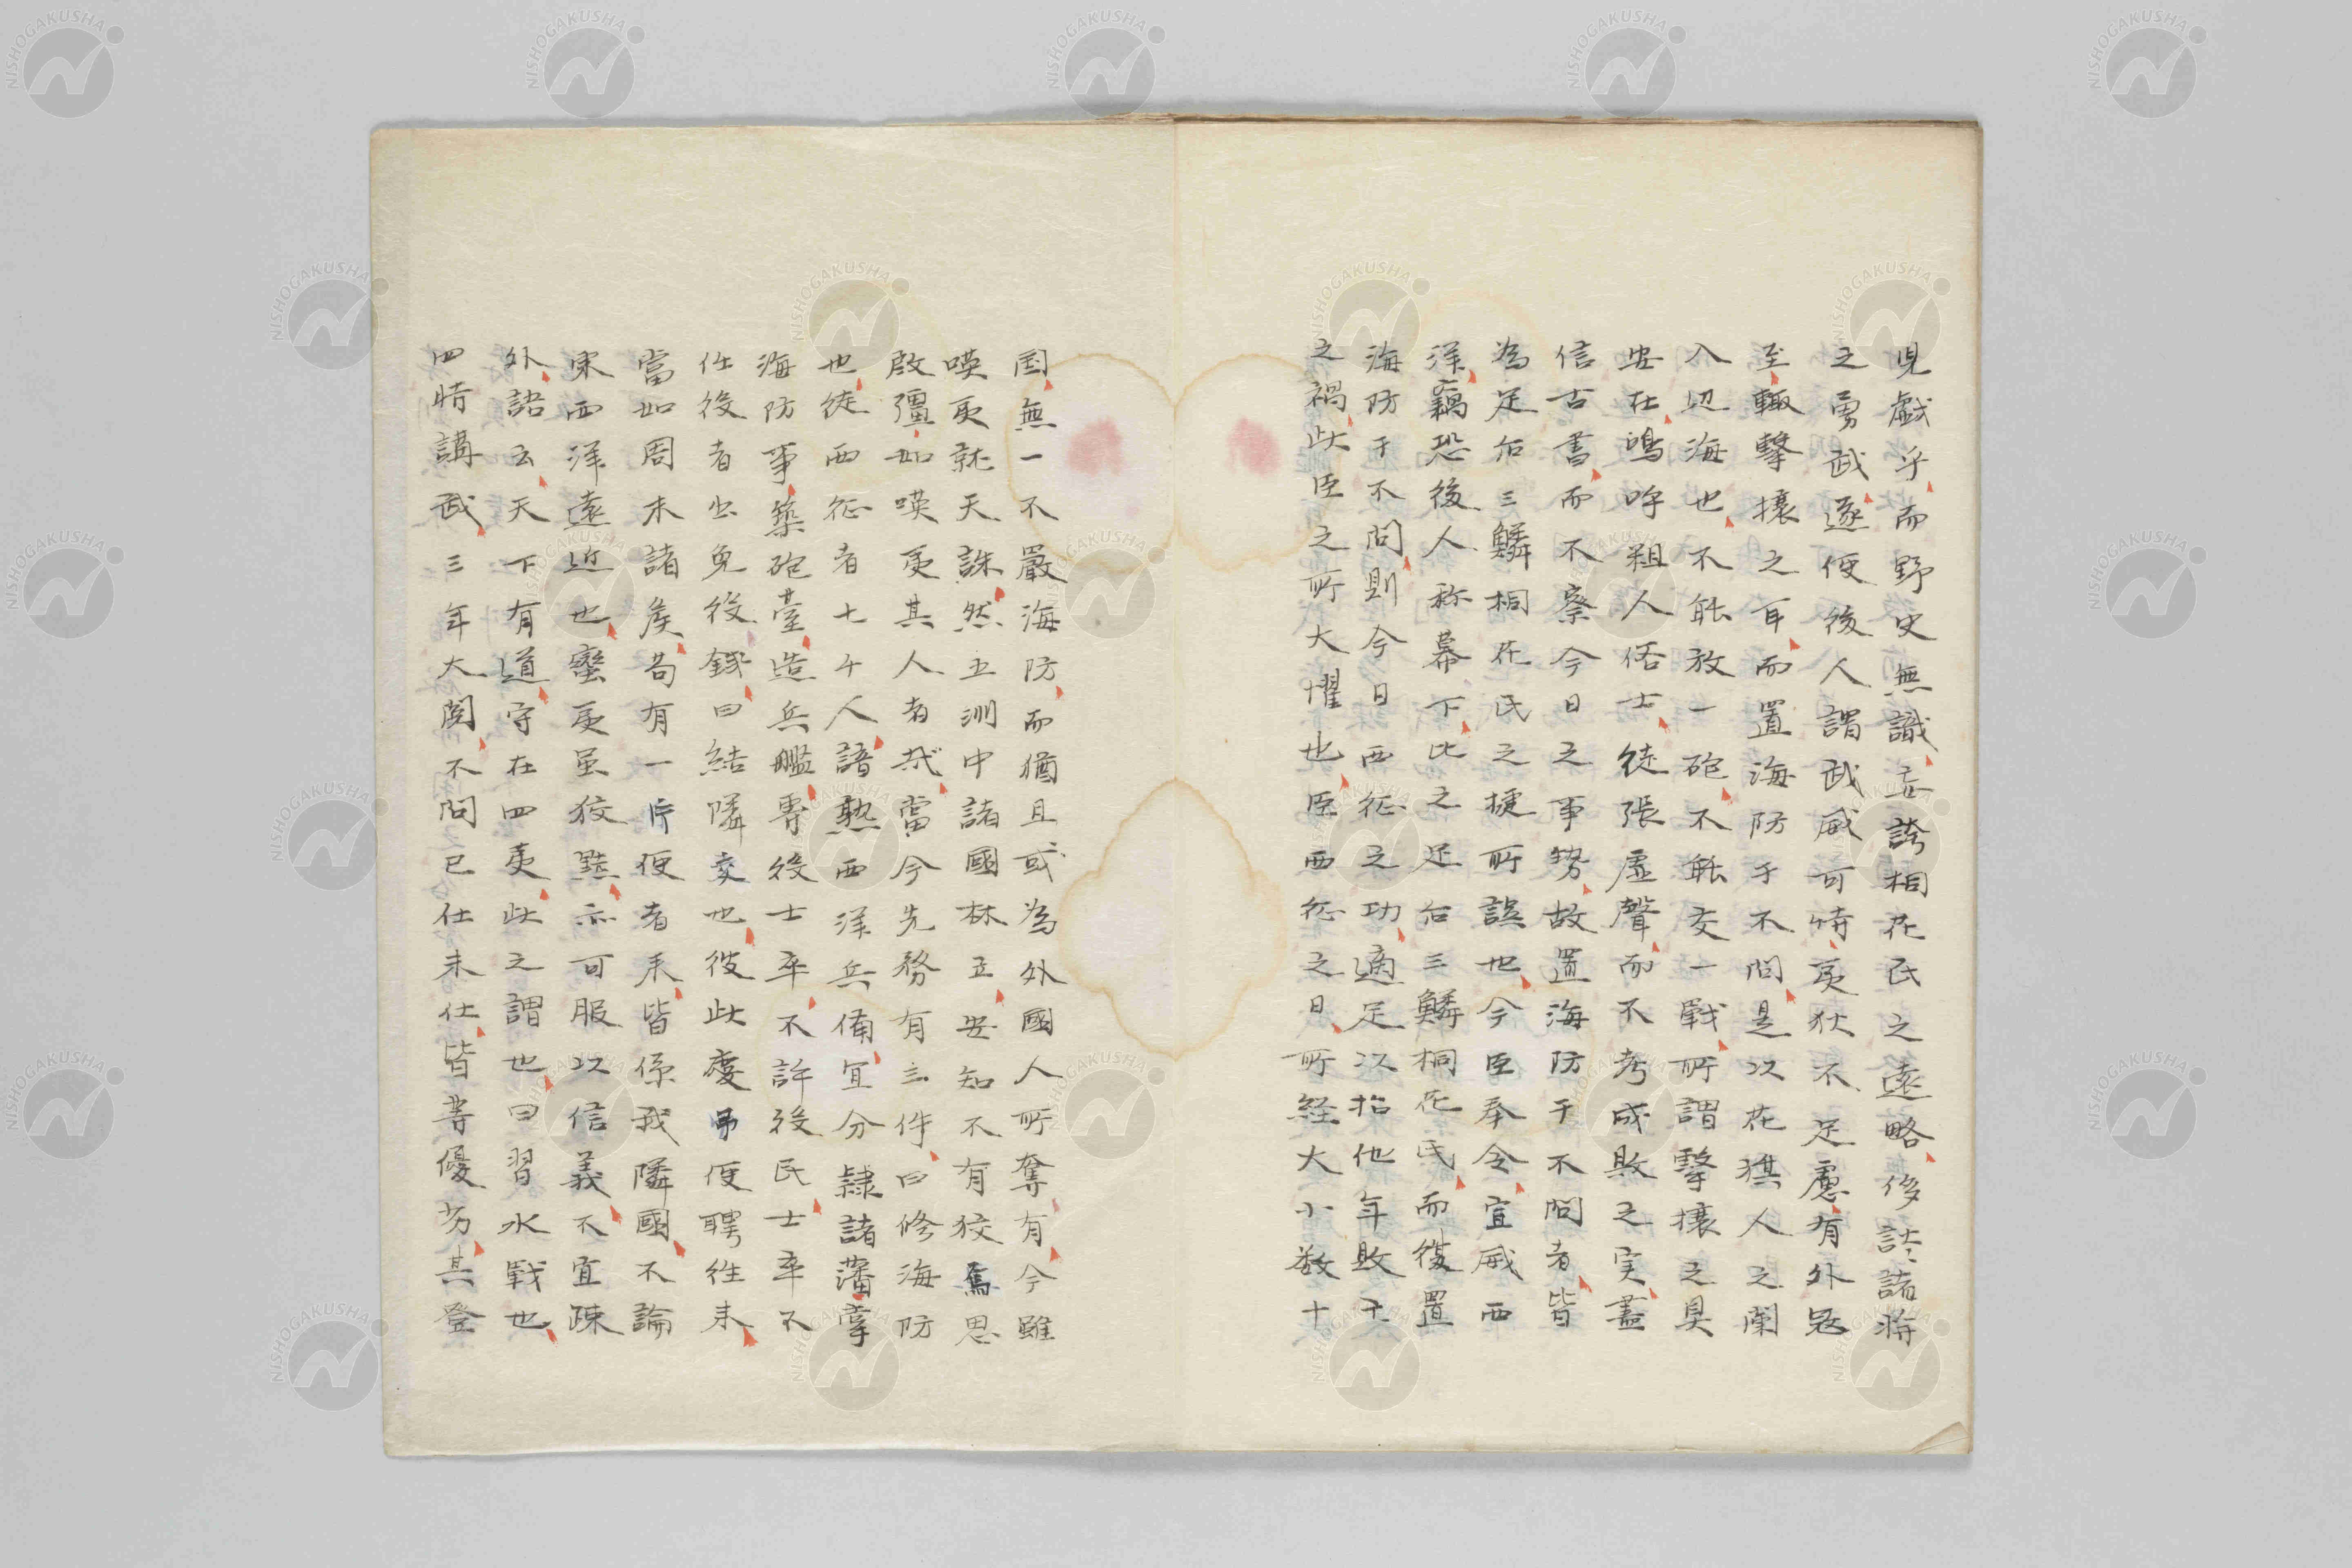 児戯乎而野史無識妄誇桐花氏之遠略侈詑諸将
之勇武遂使後人謂武威可恃夷狄不足慮有外冦
至輙撃攘之耳而置海防于不問是以花旗人之闌
入辺海也不能放一砲不能交一戦所謂撃攘之具
安在嗚呼粗人俗士徒張虚聲而不考成敗之実盡
信古書而不察今日之事勢故置海防于不問者皆
為足台三鱗桐花氏之捷所誤也今臣奉令宣威西
洋竊恐後人称幕下比之足台三鱗桐花氏而復置
海防于不問則今日西征之功適足以招他年敗亡
之禍此臣之所大懼也臣西征之日所経大小数十
国無一不嚴海防而猶且或為外國人所奪有今雖
暎夷就天誅然五洲中諸國林立安知不有狡焉思
啟彊如暎夷其人者哉當今先務有三件曰修海防
也徒西征者七千人諳熟西洋兵備宜分隷諸藩掌
海防事築砲臺造兵艦專役士卒不許役民士卒不
任役者出免役錢曰結隣交也彼此慶吊使聘往来
當如周末諸侯苟有一片使者来皆係我隣國不論
東西洋遠近也蠻夷虽狡黠亦可服以信義不宜疎
外語云天下有道守在四夷此之謂也曰習水戦也
四時講武三年大閲不問已仕未仕皆普優劣其登
NISHOGAKUSHA